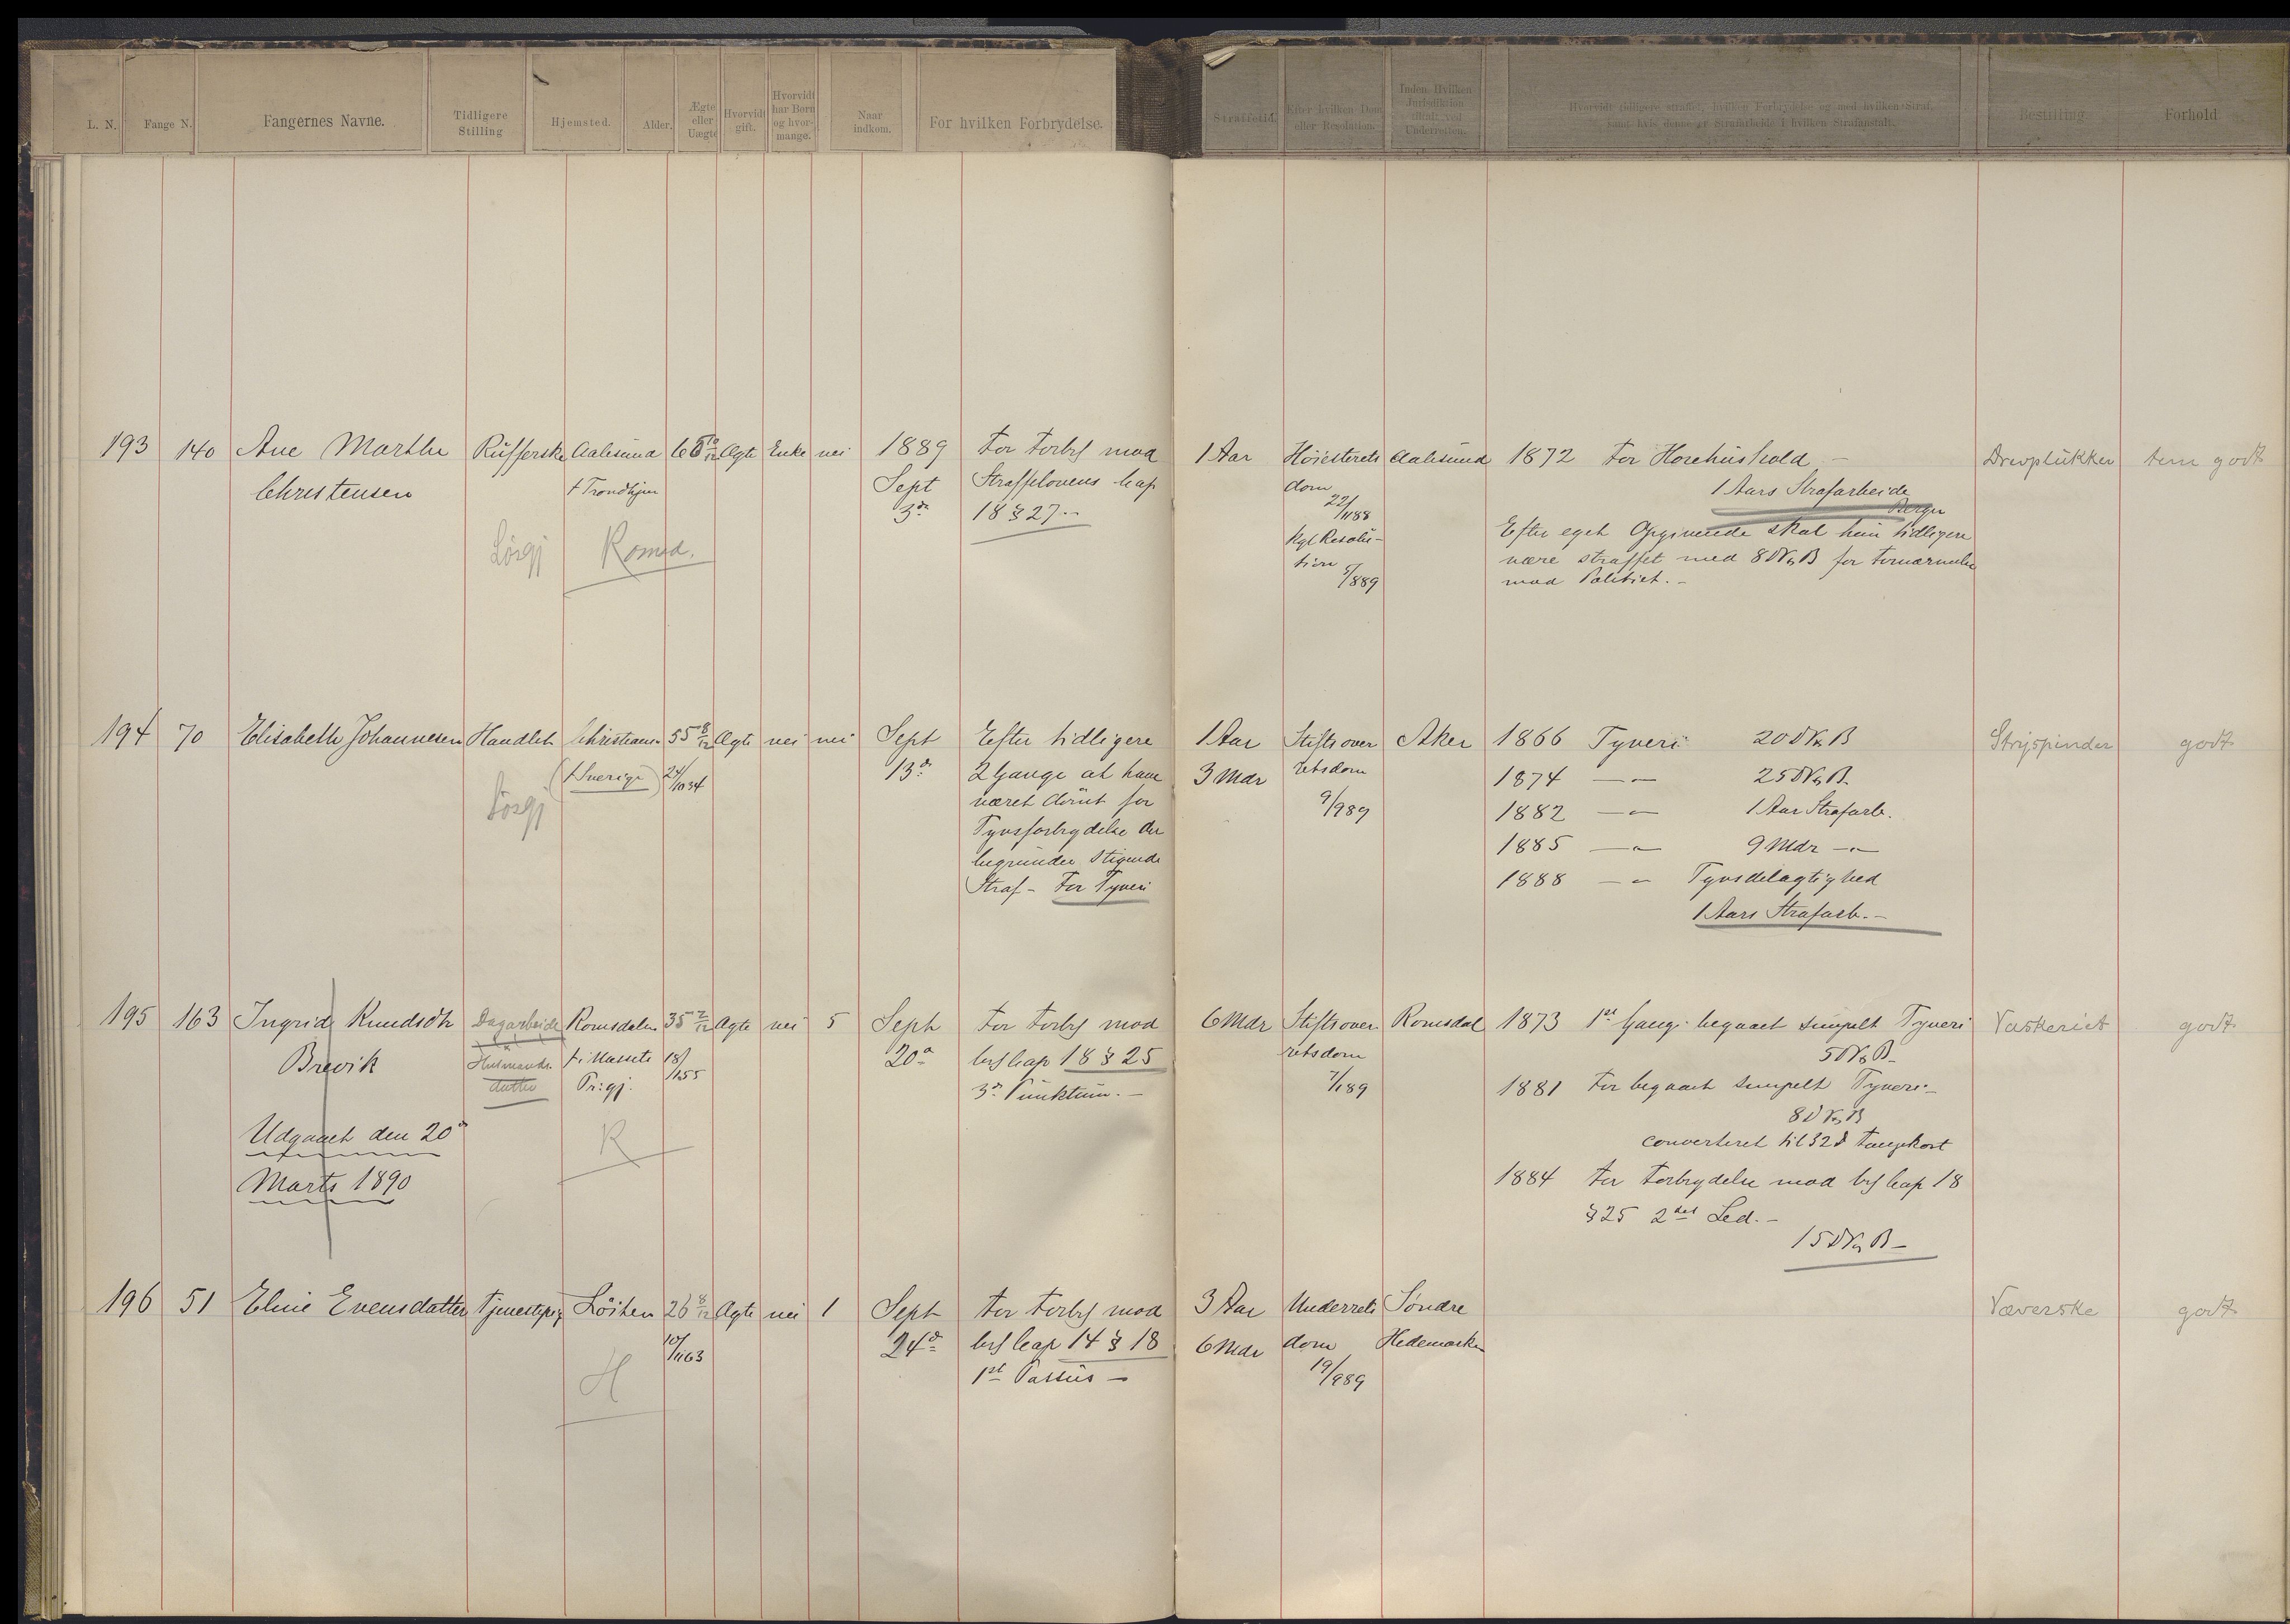 L. N. Fange N. Fangernes Navne. Tidligere Stilling Hjemsted. Alder. Ægte eller Uægte Hvorvidt gift. Hvorvidt har Børn og hvormange. Naar indkom. For hvilken Forbrydelse. Straffetid. Efter hvilken Dom eller Resolution. Inden Hvilken Jurisdiktion dømt ved Underretten. Hvorvidt tidligere straffet, hvilken Forbrydelse og med hvilken Straf, samt hvis denne er Strafarbeide i hvilken Strafanstalt. Bestilling Forhold
193 140 Ane Marthe Rufferske Aalesund Ægte Enke nei 1889 For Forbr mod 1 Aar Høiesterets Aalesund 1872 For Horehushold - Drevplukker tem godt
Christensen f Trondhjem Sept Straffelovens Cap dom 1 Aars Strafarbeide
3d 18 § 27 - 22/1188 Bergen
Romsd. Kgl Resolu- Efter eget Opgivende skal hun tidligere
tion være straffet med 8 D V & B for Fornærmelse
5/889 mod Politiet. -
194 70 Elisabeth Johannesen Handlet Christiania 55 8/12 Ægte nei nei Sept Efter tidligere 1 Aar Stiftsover Aker 1866 Tyveri 20 D V & B Strispinder godt
(f Sverige) 24/1034 13d 2 Gange at have 3 Mdr retsdom 1874 — " — 25 D V & B.
været dømt for 9/989 1882 — " — 1 Aar Strafarb.
Tyvsforbrydelse der 1885 — " — 9 Mdr — " —
begrunder stigende 1888 — " Tyvsdelagtighed
Straf - For Tyveri 1 Aars Strafarb. -
195 163 Ingrid Knudsdtr Dagarbeide Romsdalen 35 2/12 Ægte nei 5 Sept For Forbr mod 6 Mdr Stiftsover Romsdal 1873 1ste Gang begaaet simpelt Tyveri Vaskeriet godt
Brevik Husmands- f i 18/755 20d Cap 18 § 25 retsdom 5 D V & B -
datter Prgj. 3d Punktum. - 1881 For begaaet simpelt Tyveri -
Udgaaet den 20d R 8 D V & B
converteret til 32 d Fangekost
Marts 1890 1884 For Forbrydelse mod Cap 18
§ 25 2det Led. -
15 D V & B -
196 51 Eline Evensdatter Tjenestepig Löiten 26 8/12 Ægte nei 1 Sept For Forbr mod 3 Aar Underrets Søndre Væverske godt
10/1163 24d Cap 14 § 18 6 Mdr dom Hedemarken
H 1st Passus - 19/989